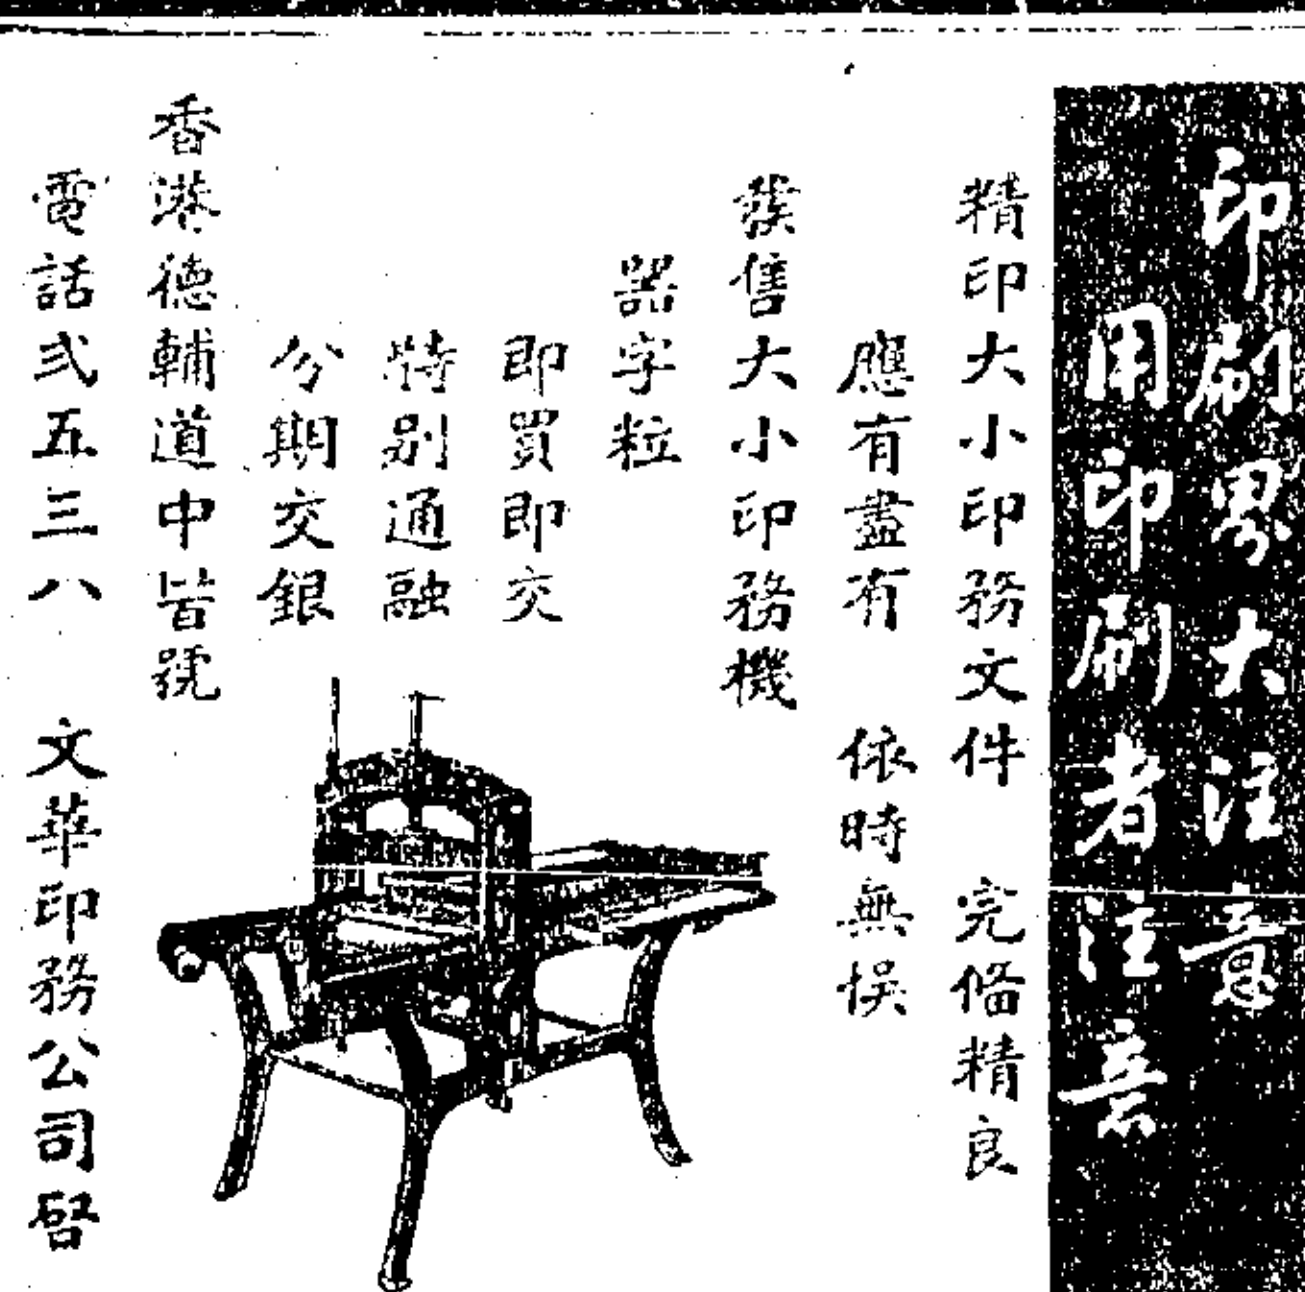 印刷界大注意
用印刷者注意
精印大小印務文件　完備精良
應有盡有　依時無悞
發售大小印務機
器字粒
即買即交
特別通融
分期交銀
香港德輔道中皆號
電話弍五三八　文華印務公司啓